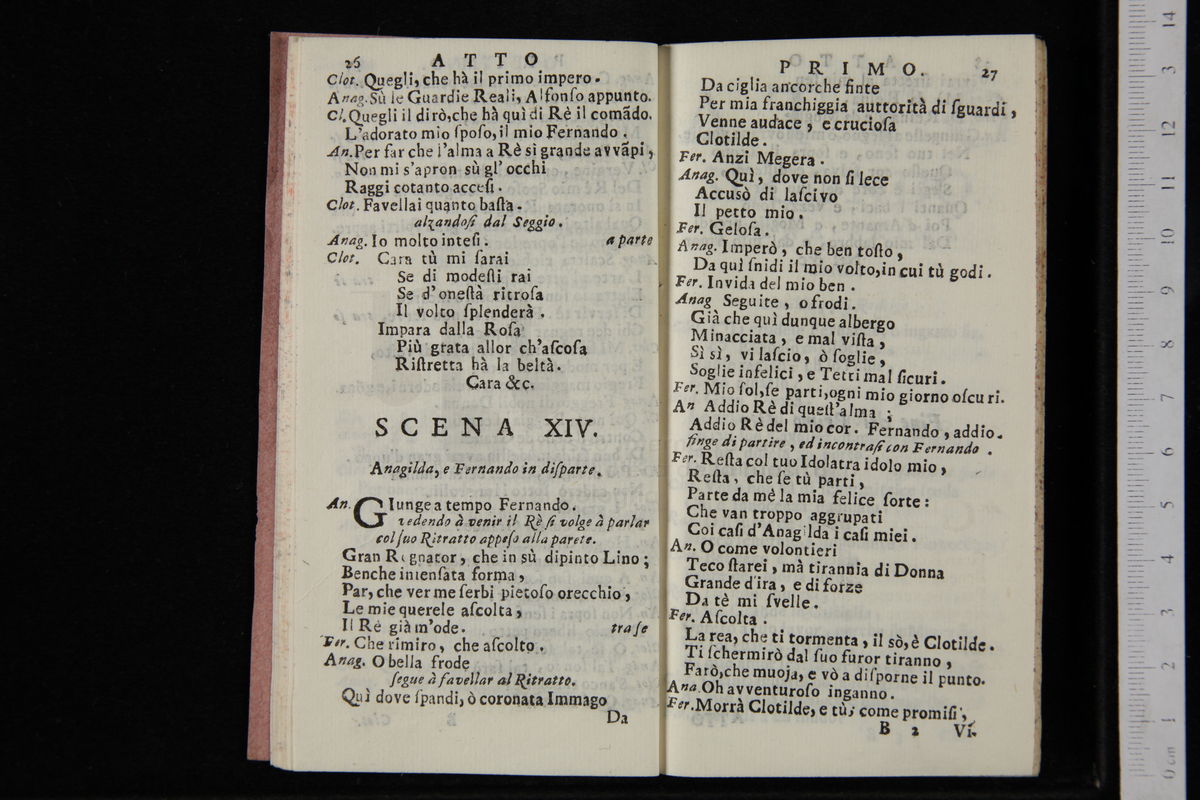 26 ATTO
Clot. Quegli, che hà il primo impero.
Anag. Sù le Guardie Reali, Alfonſo appunto.
Cl. Quegli il dirò, che hà quì di Rè il comãdo.
L'adorato mio ſpoſo, il mio Fernando.
An. Per far che l'alma a Rè sì grande avvãpi,
Non mi s'apron sù gl' occhi
Raggi cotanto acceſi.
Clot. Favellai quanto baſta.
alzandoſi dal Seggio.
Anag. Io molto inteſi. a parte
Clot. Cara tù mi ſarai
Se di modeſti rai
Se d'oneſtà ritroſa
Il volto ſplenderà.
Impara dalla Roſa
Più grata allor ch'aſcoſa
Riſtretta hà la beltà.
Cara &c.
SCENA XIV.
Anagilda, e Fernando in diſparte.
An. GIunge a tempo Fernando.
vedendo à venir il Rè ſi volge à parlar
col ſuo Ritratto appeſo alla parete.
Gran Regnator, che in sù dipinto Lino;
Benche inſenſata forma,
Par, che ver me ſerbi pietoſo orecchio,
Le mie querele aſcolta;
Il Rè già m'ode. tra ſe
Fer. Che rimiro, che aſcolto.
Anag. O bella frode
ſegue à favellar al Ritratto.
Quì dove ſpandi, ò coronata Immago
Da
PRIMO. 27
Da ciglia ancorche finte
Per mia franchiggia auttorità di ſguardi,
Venne audace, e crucioſa
Clotilde.
Fer. Anzi Megera.
Anag. Quì, dove non ſi lece
Accusò di laſcivo
Il petto mio.
Fer. Geloſa.
Anag. Imperò, che ben toſto,
Da quì ſnidi il mio volto, in cui tù godi.
Fer. Invida del mio ben.
Anag Seguite, o frodi.
Già che quì dunque albergo
Minacciata, e mal viſta,
Sì sì, vi laſcio, ò ſoglie,
Soglie infelici, e Tetti mal ſicuri.
Fer. Mio ſol, ſe parti, ogni mio giorno oſcuri.
An Addio Rè di queſt'alma;
Addio Rè del mio cor. Fernando, addio.
finge di partire, ed incontraſi con Fernando.
Fer. Reſta col tuo Idolatra idolo mio,
Reſta, che ſe tù parti,
Parte da mè la mia felice ſorte:
Che van troppo aggrupati
Coi caſi d'Anagilda i caſi miei.
An. O come volontieri
Teco ſtarei, mà tirannia di Donna
Grande d'ira, e di forze
Da tè mi ſvelle.
Fer. Aſcolta.
La rea, che ti tormenta, il sò, è Clotilde.
Ti ſchermirò dal ſuo furor tiranno,
Farò, che muoja, e vò a diſporne il punto.
Ana. Oh avventuroſo inganno.
Fer. Morrà Clotilde, e tù, come promiſi,
B 2 Vi.